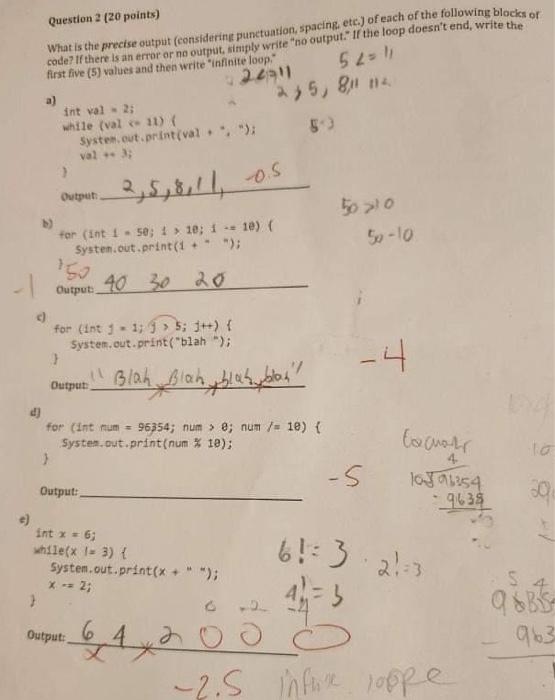 Question 2 (20 points)
What is the precise output (considering punctuation, spacing, etc.) of each of the following blocks of
code? If there is an error or no output, simply write "no output." If the loop doesn't end, write the
first five (5) values and then write "infinite loop."
5 <= 11
2<=11
2,5, 8,11
a)
int val = 2;
while (val <= 11) {
System.out.print(val + ", ");
val += 3;
}
Output: 2,5,8,11, -0.5
b)
50 >10
for (int i = 50; i > 10; i -= 10) {
50-10
System.out.print(i + " ");
}
50
-1
Output: 40 30 20
c)
for (int j = 1; j > 5; j++) {
System.out.print("blah ");
}
-4
Output: " Blah Blah, blah, blah"
d)
for (int num = 96354; num > 0; num /= 10) {
System.out.print(num % 10);
}
4
-5
Output:
e)
int x = 6;
while(x != 3) {
6!= 3
2!=3
System.out.print(x + " ");
x -= 2;
4!=3
}
Output: 6 4 2 0 0 0
-2.5